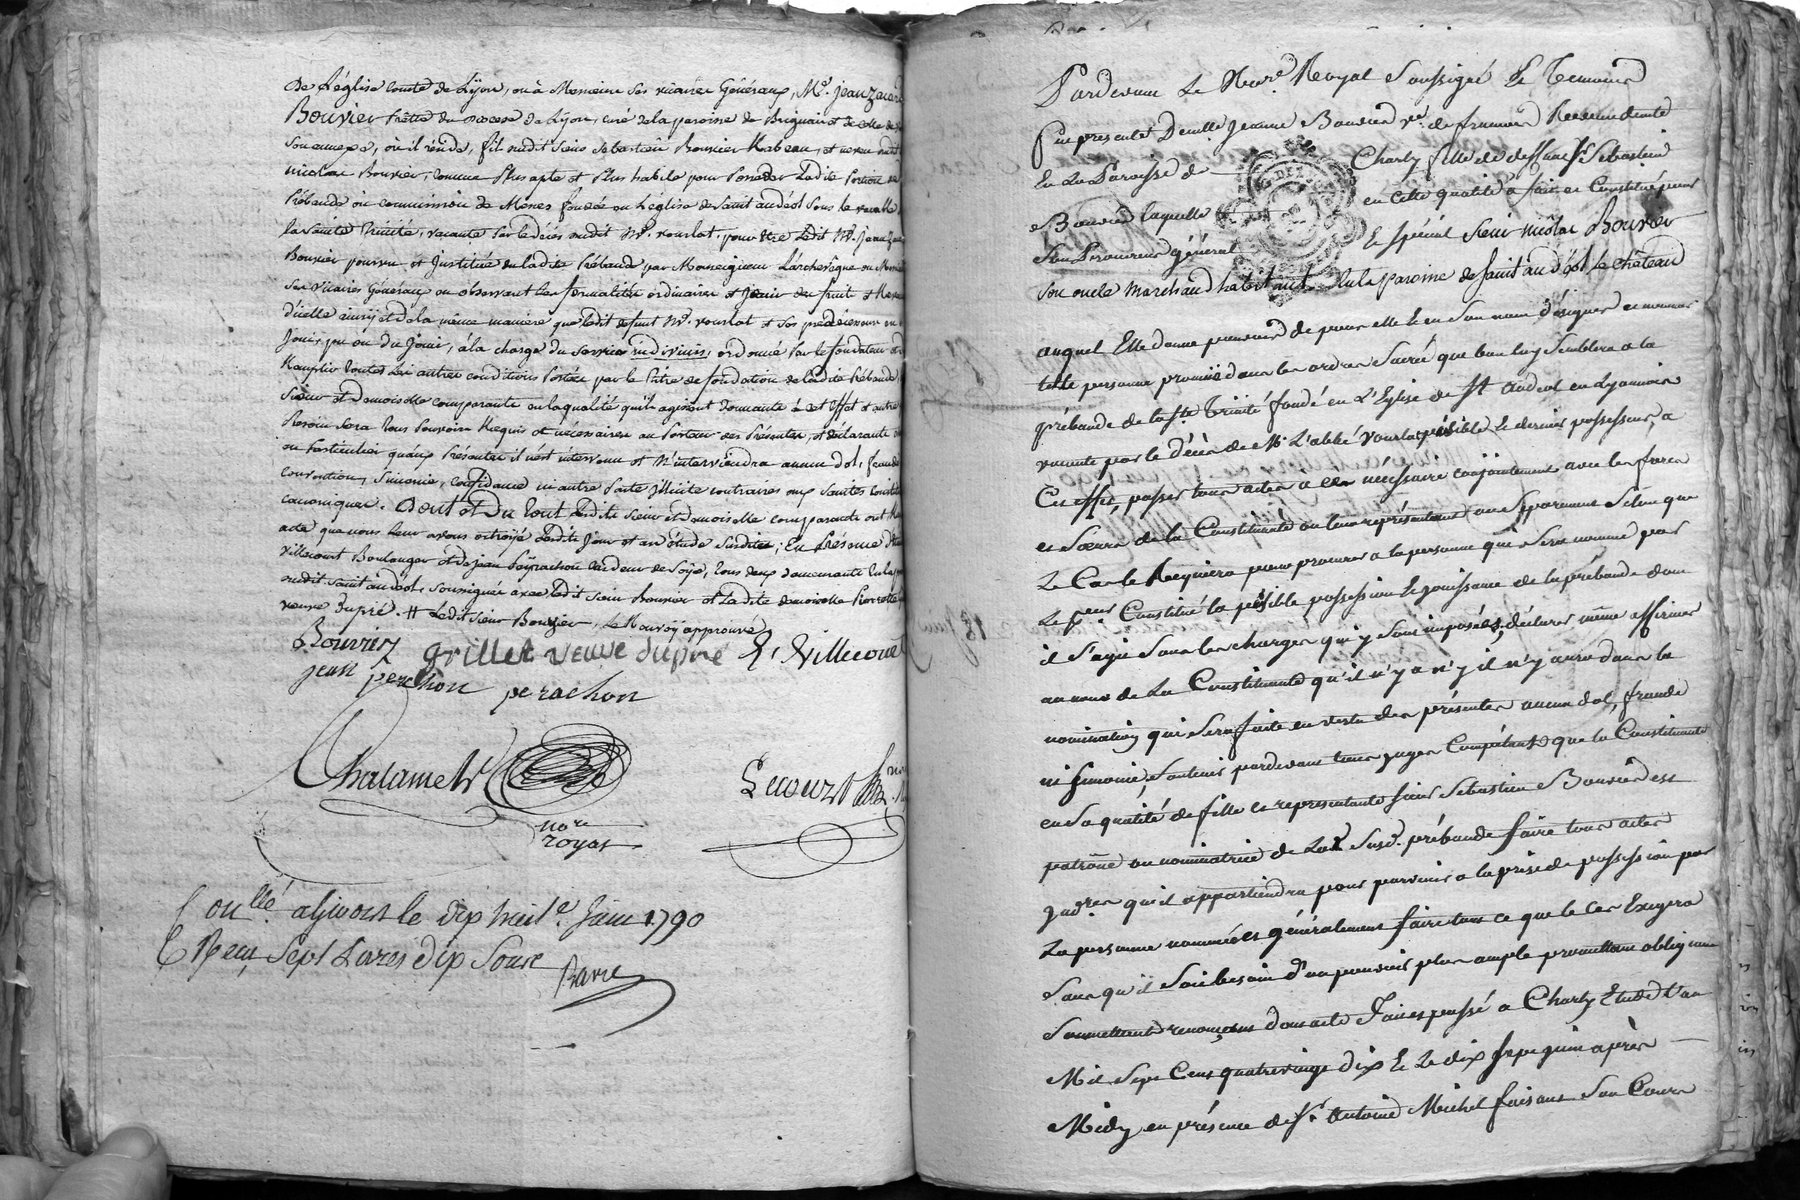 De L'église Comte de Lÿon, ou à Messieurs ses vicaires Généraux, Mr. jean
Bouvier Prêtre du diocese de Lÿon, curé de la paroisse de Brignais et de celle de
son annexe, où il reside, fils dudit sieur sebastien Bouvier et neveu dudit
nicolas Bouvier, comme Plus apte et Plus habile pour Posseder Ladite Portion de
Prébende ou commission de Messes fondée en L'église de saint andéol sous le vocable
la sainte Trinité, vacante Par le décès dudit Mr. vourlat, pour être Ledit Mr. jean
Bouvier pourvu et Institué de ladite Prébende par Monseigneur L'archevêque ou
ses vicaires Généraux en observant les formalités ordinaires et Jouir des fruits et
d'icelle ainsy et de la même maniere que Ledit defunt Mr. vourlat et ses prédécesseurs en
Joui, pu ou du Jouir, à la charge du service divin, ordonné Par le fondateur
Remplir toutes Les autres conditions Portées par le Titre de fondation de ladite Prébende
sieur et demoiselle comparants en la qualité qu'ils agissent donnants à cet Effet et autre
Besoin sera tous Pouvoirs Requis et nécessaires au Porteur des Présentes, et déclarants
en Particulier qu'aux Présentes il n'est intervenu et N'interviendra aucun dol, fraude
convention, simonie, confidence ni autre Pacte Illicite contraires aux saintes
canoniques. Dont et Du tout Lesdits sieur et demoiselle comparants ont
acte que nous leur avons octroÿé Lesdits jour et an étude susdites; En Présence
villecourt Boulanger et de jean Peyrachon Vendeur de Soÿe, tous deux demeurants
audit saint andéol, soussignés avec Ledit sieur Bouvier et Ladite demoiselle Pierrette
veuve dupré. # Ledit sieur Bouvier, Le Renvoÿ approuvé
Bouvier grillet veuve dupré L. Villecourt
jean perachon perachon
Chalamel Lecourt
nore
royal
Conllé a Givors le dix huite. Juin 1790
Reçu Sept Livres dix Sous
Ravie
Pardevant Le Nore. Royal Soussigné Et Temoins
Fut presente Demlle Jeanne Bouvier ve. de Residente
En La Paroisse de Charly fille de deffunt Sr. Sebastien
Bouvier laquelle en cette qualité a fait et Constitué pour
Son Procureur général Et spécial sieur nicolas Bouvier
son oncle marchand habitant en la paroisse de saint andéol le château
auquel Elle donne pouvoir de pour elle et en Son nom désigner et nommer
telle personne promüe dans les ordres Sacrés que bon luy Semblera a la
prébande de la Ste. Trinité fondé en L'Eglise de St Andeol en Lyonnois
vacante par le décès de Mr. L'abbé Vourlat paisible Et dernier possesseur, a
Cet effet, passer tous actes a ce nécéssaire conjointement avec les freres
et Sœurs de la Constituante ou leurs représentants ou Séparement Selon que
Le Cas le Requiera, pour procurer a la personne qui Sera nommé par
Le pcur Constitué la paisible possession Et jouissance de la prébande dont
il S'agit Sous les charges qui y Sont imposées, déclarer même affirmer
au nom de La Constituante qu'il n'y a n'y il n'y aura dans la
nomination qui Sera faite en vertu des présentes aucun dol, fraude
ni Simonie, Soutenir pardevant tous juges Compétants que la Constituante
en Sa qualité de fille et représentante Sieur Sebastien Bouvier est
patrone ou nominatrice de La Susd. prébande faire tous actes
judres qu'il appartiendra pour parvenir a la prise de possession par
La personne nommée et généralement faire tout ce que le Cas Exigera
Sans qu'il Soit besoin d'un pouvoir plus ample promettant obligeant
Soumettant renonçant dont acte Fait et passé a Charly Etude l'an
Mil Sept Cent quatrevingt dix Et Le dix Sept juin après
Midy en présence de Sr. Antoine Michel faisant Son Cours